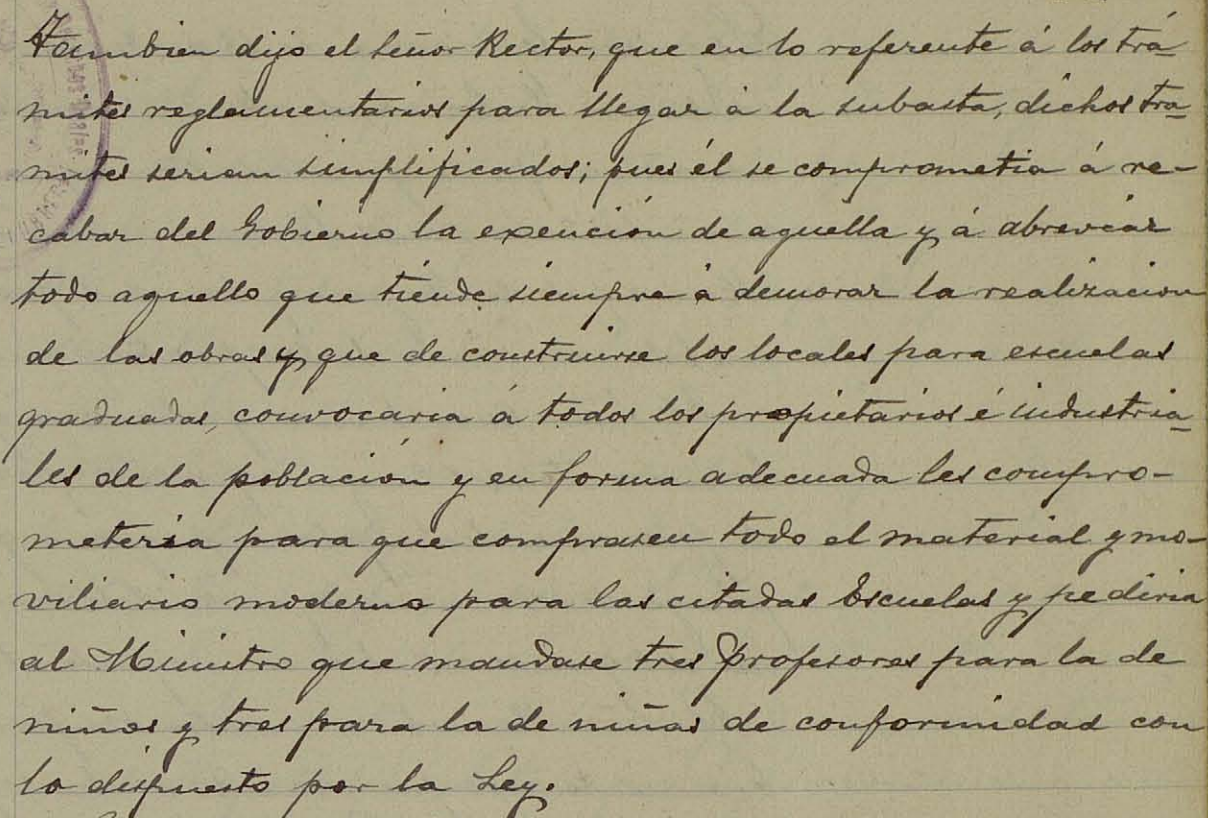 Tambien dijo el Señor Rector, que en lo referente á los trá-
mites reglamentarios para llegar á la subasta, dichos tra-
mites serian simplificados; pues él se comprometia á re-
cabar del Gobierno la exención de aquella y á abreviar
todo aquello que tiende siempre á demorar la realizacion
de las obras y que de construirse los locales para escuelas
graduadas, convocaria á todos los propietarios é industria-
les de la población y en forma adecuada les compro-
meteria para que comprasen todo el material y mo-
viliario moderno para las citadas Escuelas y pediria
al Ministro que mandase tres profesores para la de
niños y tres para la de niñas de conformidad con
lo dispuesto por la Ley.